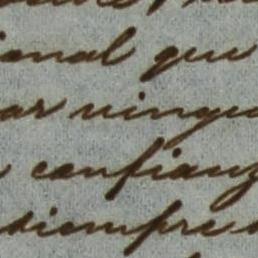 ional que
ar ningu
confianz
siempre